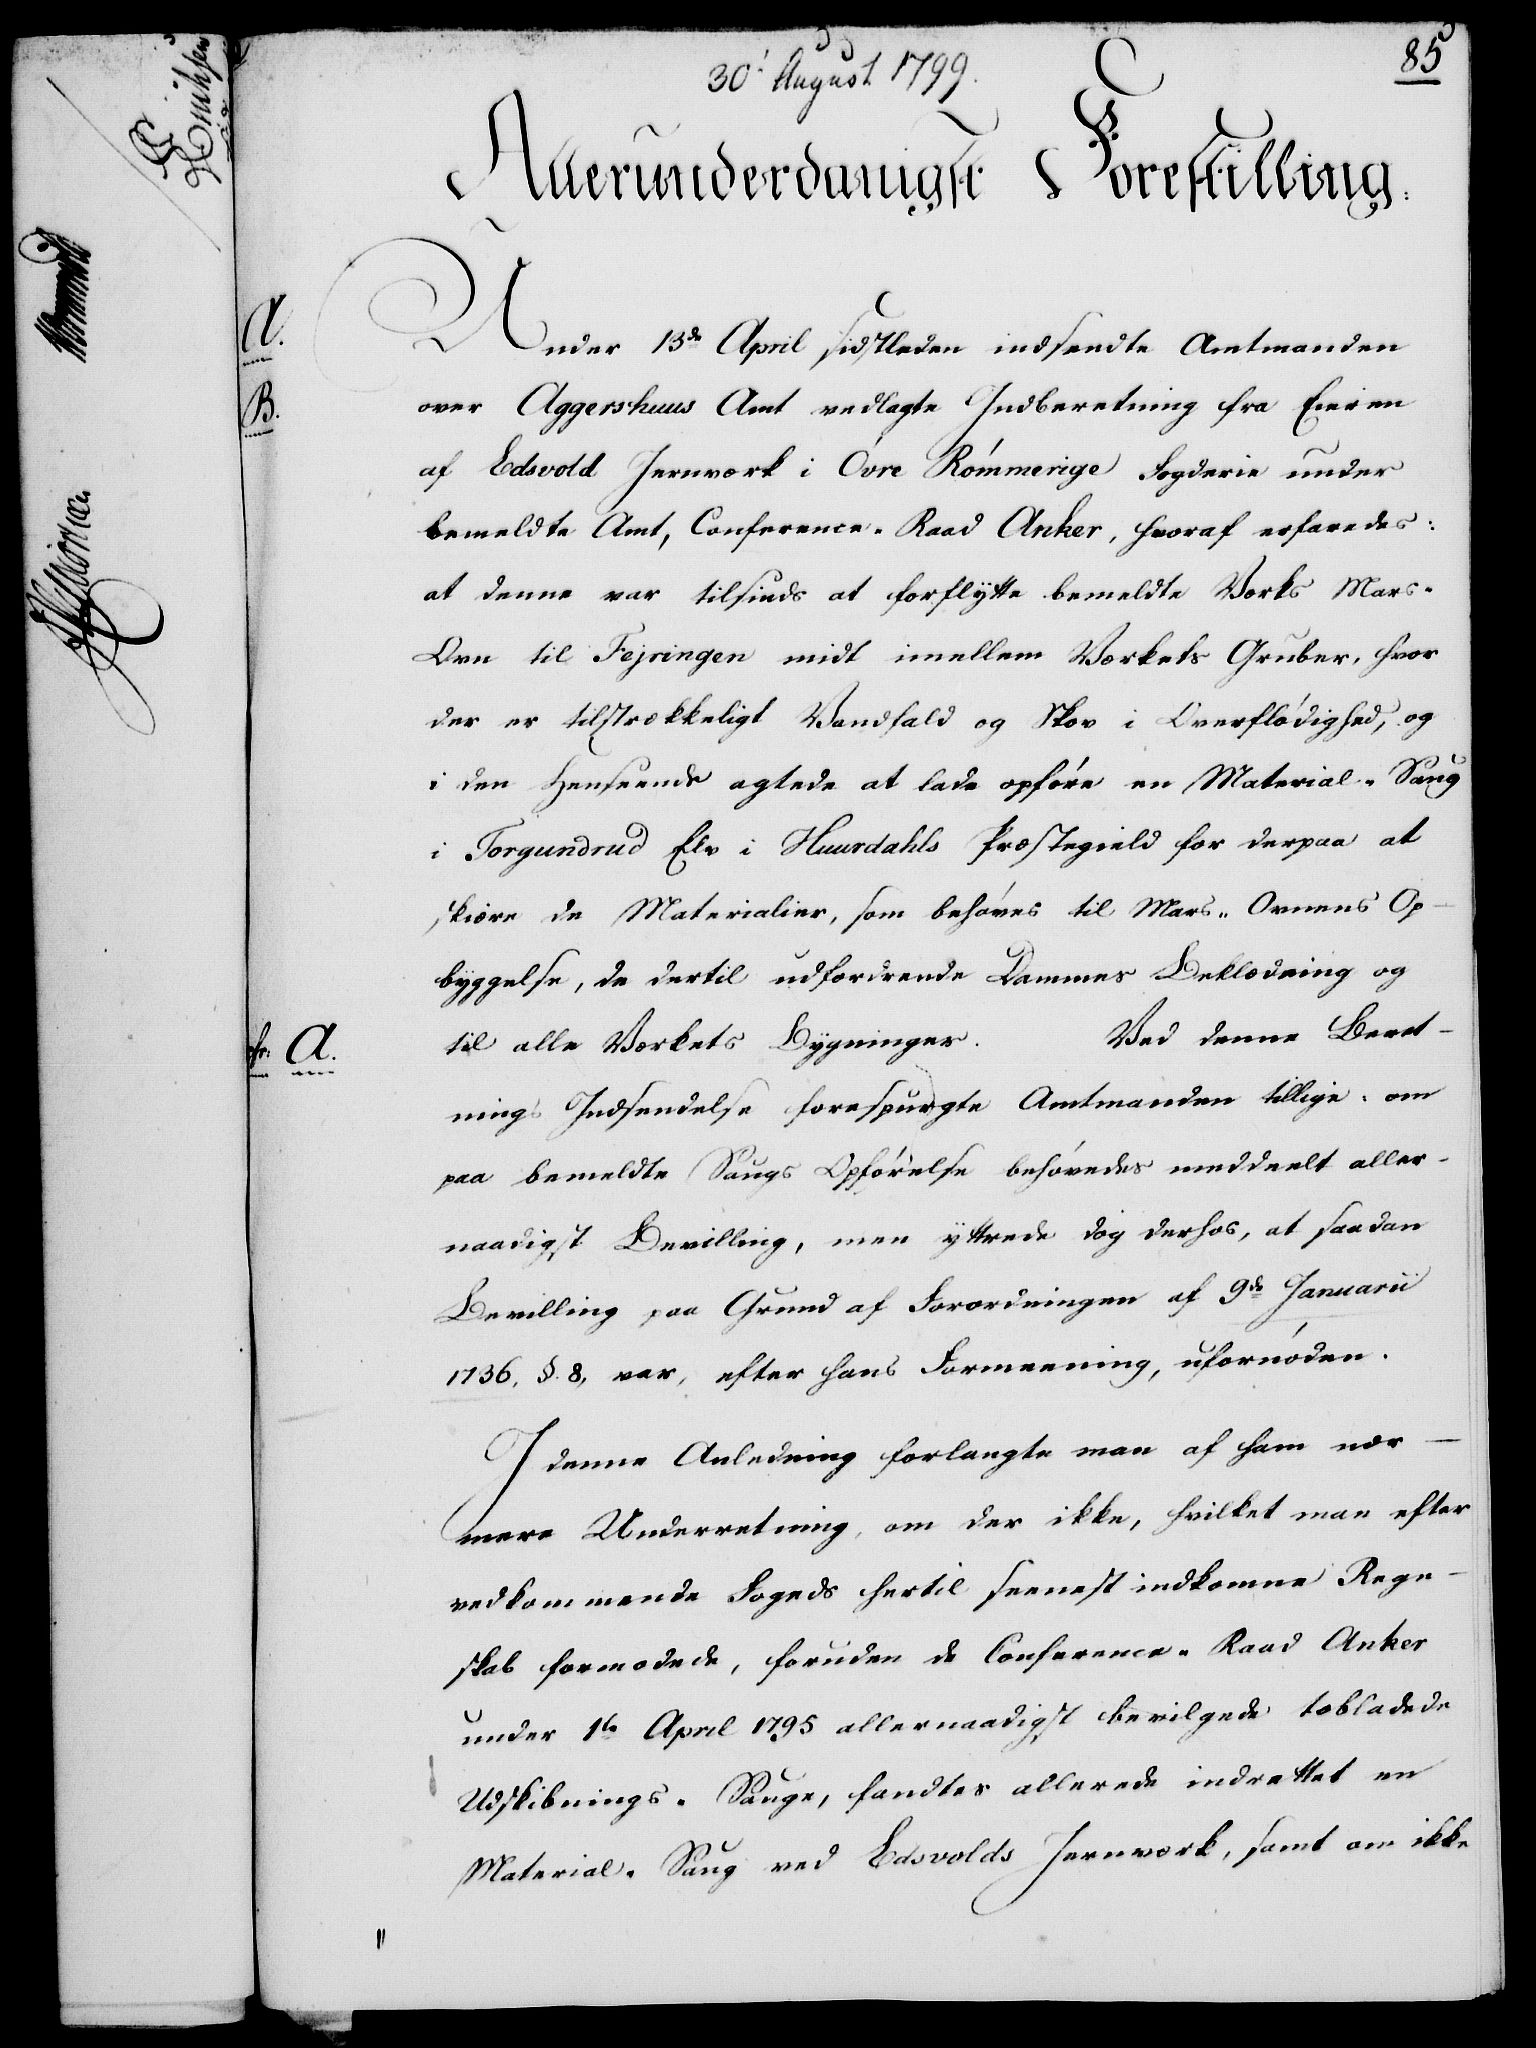 30' August 1799.
85
Allerunderdanigst Forestilling.
A.
Under 13de April sidstleden indsendte Amtmanden
B.
over Aggershuus Amt vedlagte Indberetning fra Eieren
af Edsvold Jernværk i Óvre Rómmerige Fogderie under
bemeldte Amt, Conference-Raad Anker, hvoraf erfaredes:
at denne var tilsinds at forflytte bemeldte Værks Mas-
Ovn til Fejringen midt imellem Værkets Gruber, hvor
der er tilstrækkeligt Vandfald og Skov i Overflódighed, og
i den Henseende agtede at lade opfóre en Material-Saug
i Torgundrud Elv i Huurdahls Præstegield for derpaa at
skiære de Materialier, som behóves til Mas-Ovnens Op-
byggelse, de dertil udfordrende Dammes Beklædning og
cfr: A.
til alle Værkets Bygninger. Ved denne Beret-
nings Indsendelse forespurgte Amtmanden tillige: om
paa bemeldte Saugs Opfórelse behóvedes meddeelt aller-
naadigst Bevilling, men yttrede dog derhos, at saadan
Bevilling paa Grund af Forordningen af 9de Januarii
1736, §. 8, var, efter hans Formeening, ufornóden.
I denne Anledning forlangte man af ham nær-
mere Underretning, om der ikke, hvilket man efter
vedkommende Fogeds hertil seenest indkomne Regn-
skab formodede, foruden de Conference-Raad Anker
under 1te April 1795 allernaadigst bevilgede tobladede
Udskibnings-Sauge, fandtes allerede indrettet en
Material-Saug ved Edsvolds Jernværk, samt om ikke